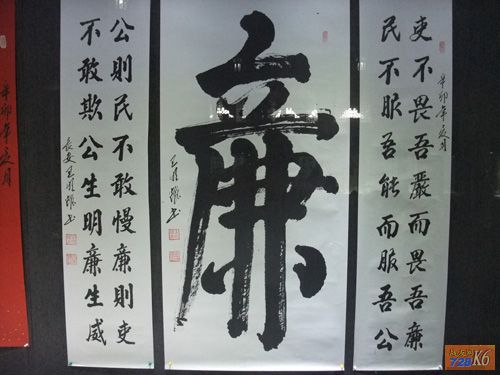 辛卯年夏月
吏不畏吾嚴而畏吾廉
民不服吾能而服吾公
廉
公則民不敢慢廉則吏
不敢欺公生明廉生威
辛卯年夏月
728K6